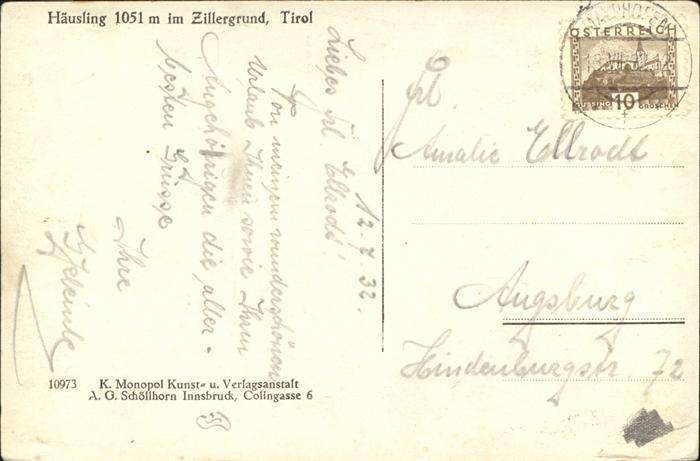 Häusling 1051 m im Zillergrund, Tirol
MAYRHOFEN
ÖSTERREICH
GÜSSING 10 GROSCHEN
12.7.32.
Liebes Frl. Ellrodt!
Von meinem wunderschönen
Urlaub Ihnen sowie Ihren
Angehörigen die aller-
besten Grüsse
Ihre
Frl.
Amalie Ellrodt
Augsburg
Hindenburgstr 72
10973 K. Monopol Kunst- u. Verlagsanstalt
A. G. Schöllhorn Innsbruck, Colingasse 6